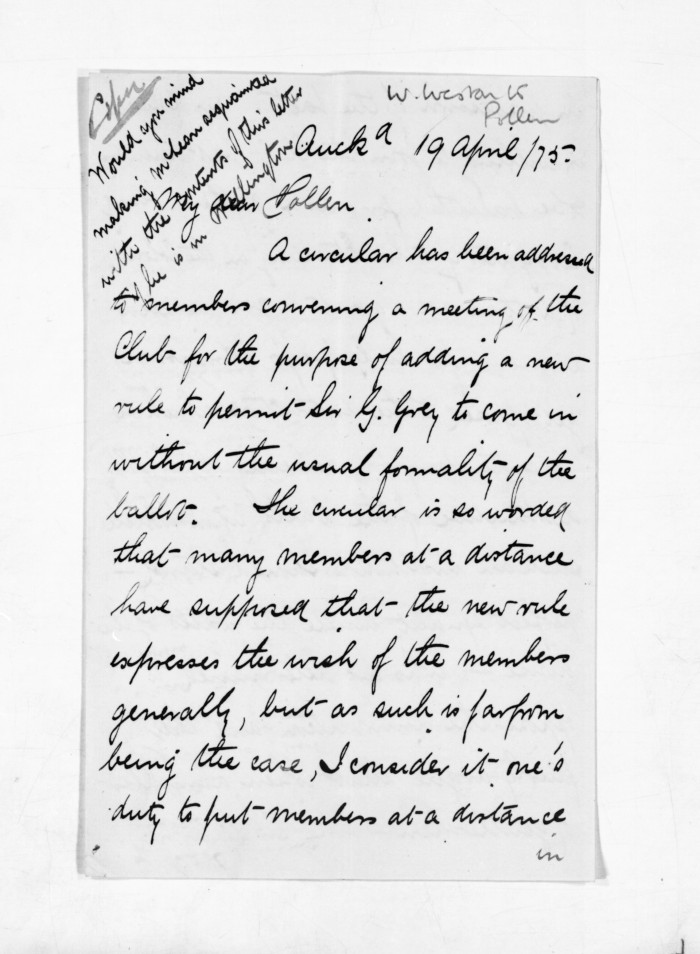 Copy
W. Weston to
Pollen
Would you mind
making McLean acquainted
with the contents of this letter
if he is in Wellington
Auckd 19 April /75.
My dear Pollen.
A circular has been addressed
to members convening a meeting of the
Club for the purpose of adding a new
rule to permit Sir G. Grey to come in
without the usual formality of the
ballot. The circular is so worded
that many members at a distance
have supposed that the new rule
expresses the wish of the members
generally, but as such is far from
being the case, I consider it one's
duty to put members at a distance
in